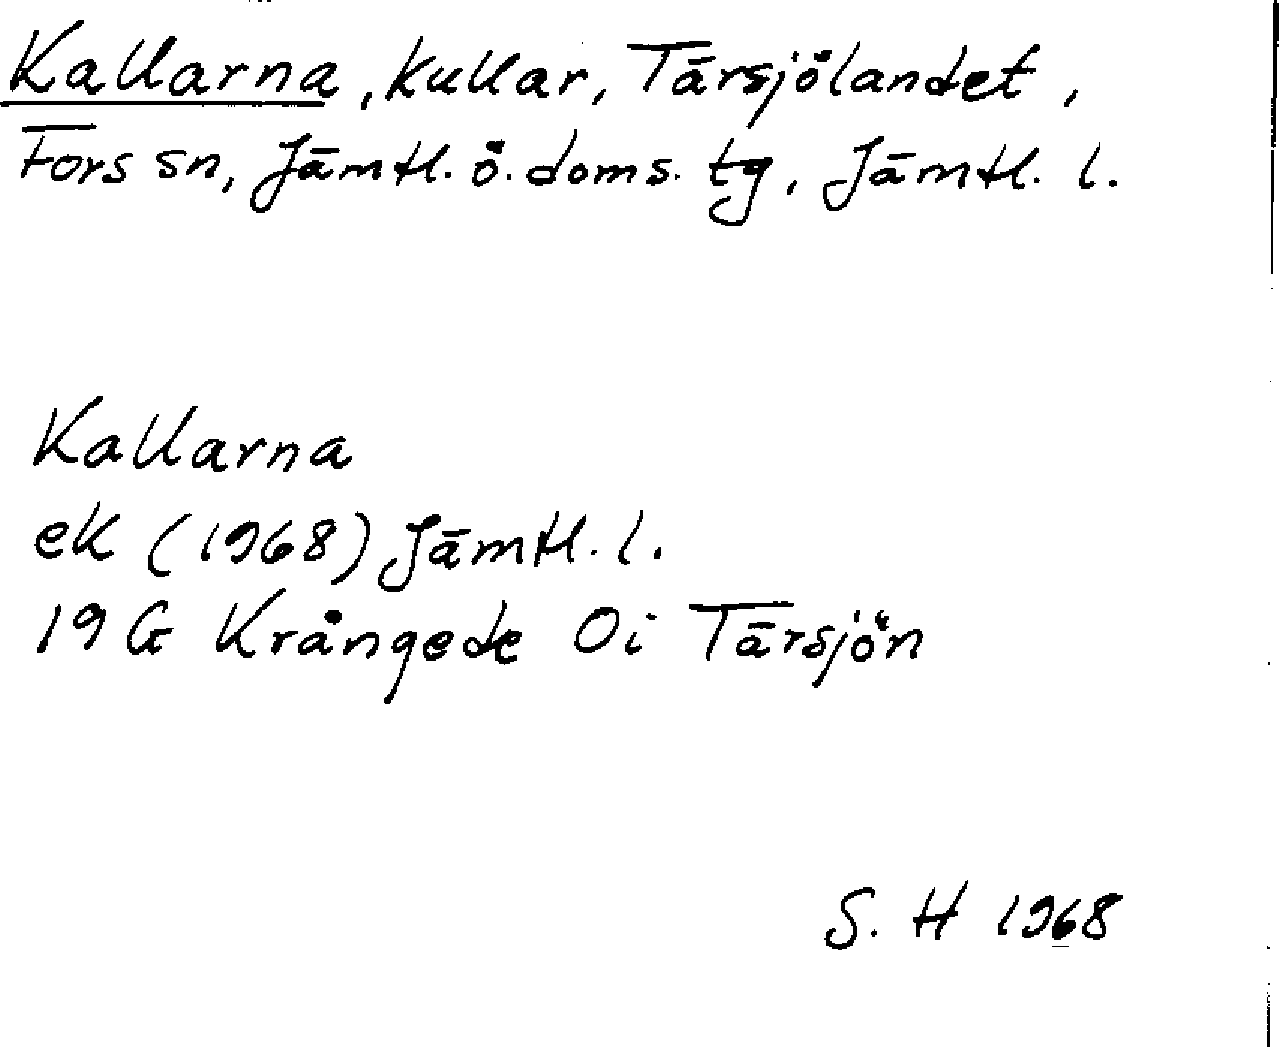 Kallarna, kullar, Tärsjölandet,
Fors sn, Jämtl. ö. doms. tg, Jämtl. l.
Kallarna
ek (1968) Jämtl. l.
19 G Krångede 0i Tärsjön
S. H 1968